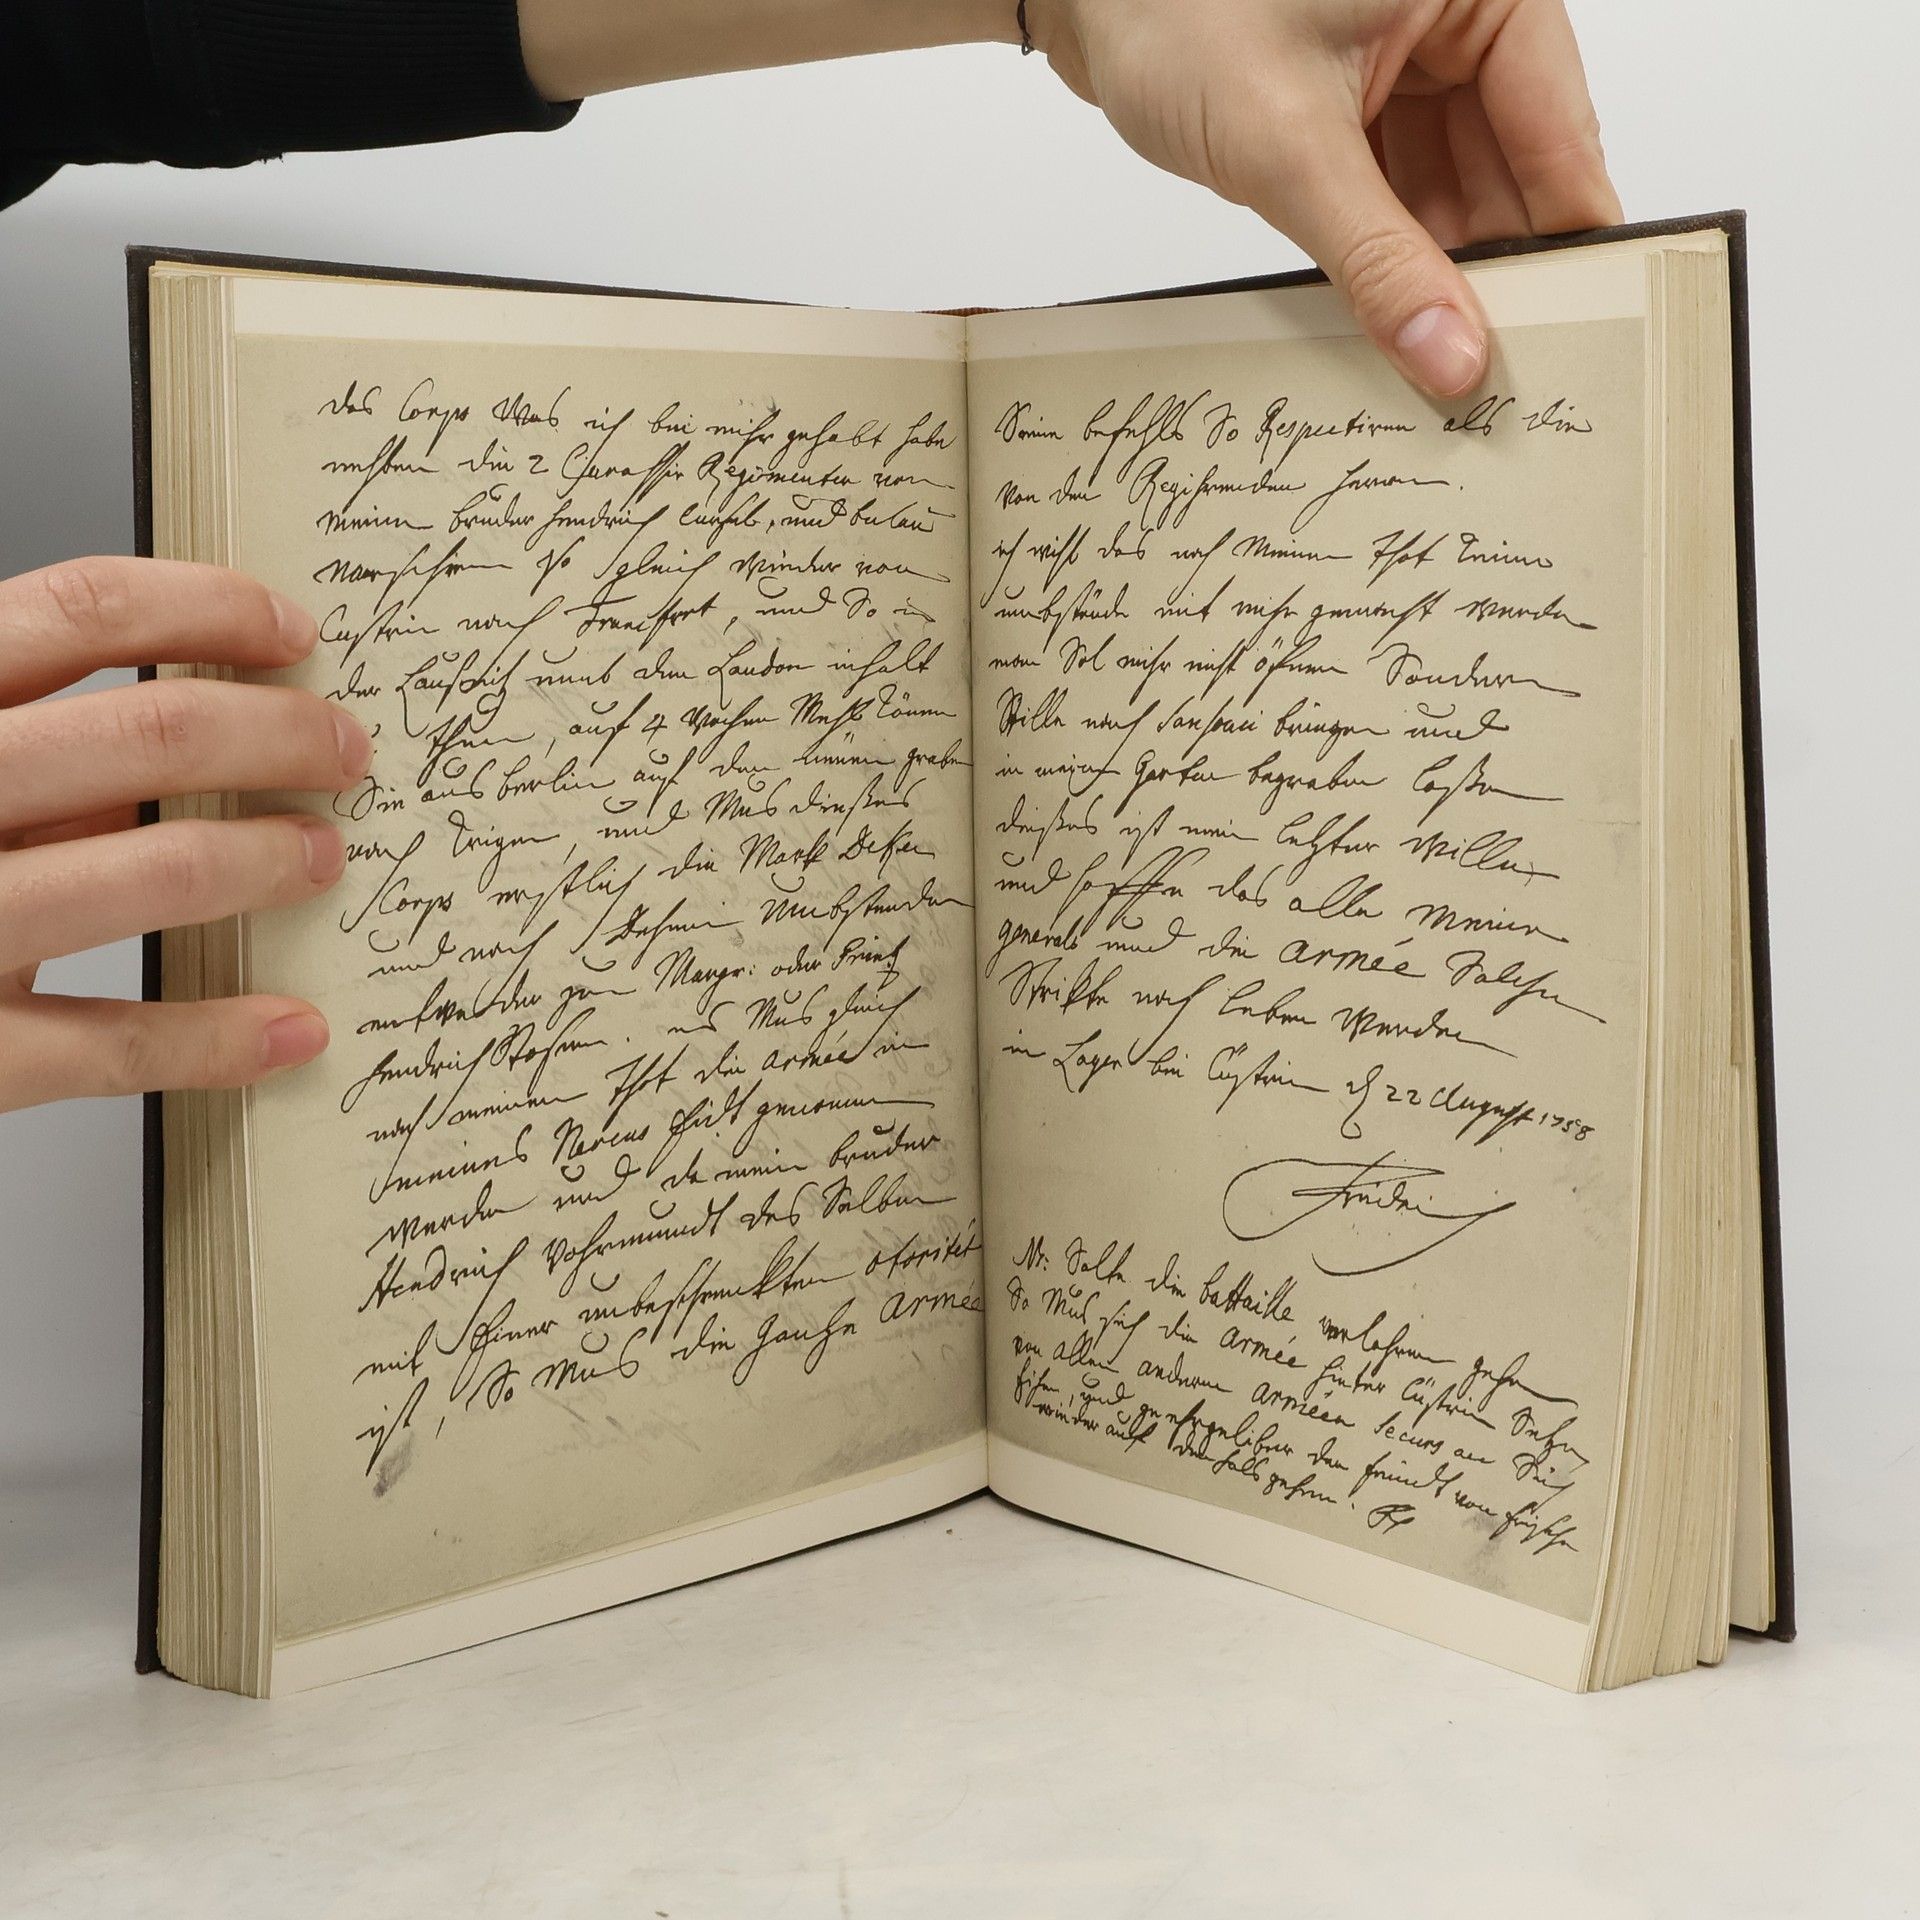 das Corps Was ich bei mihr gehabt habe
nehben die 2 Curassir Regimenter von
meinen bruder hendrich
marschiren so gleich wieder von
Custrin nach Francfort, und So in
der Lausnitz umb den Laudon inhalt
thun, auf 4 Wochen Mehl Könen
Sie aus berlin auf den neüen graben
nach krigen, und Mus dießes
Corps erstlich die Mark Deken
und nach Dehnen Umbstenden
entweder zum Margr: oder Printz
hendrich Stoßen. es Mus gleich
nach meinen Thot die Armée in
meines Neveus Eidt genomen
werden und da mein bruder
Hendrich Vohrmundt des Selben
mit Einer unbeschrenkten otoritét
ist, So Mus die gantze Armée
Seine befehls So Respectiren als die
von den Regihrenden herren.
ich wihl das nach Meinen Thot Keine
umbstände mit mihr gemacht werden
man Sol mihr nicht öfnen Sondern
Stille nach Sansouci bringen und
in meinen Garten begraben laßen
dießes ist mein letzter Wille
und hoffe das alle meine
generals und die Armée Solchen
Strikte nach leben werden
in Lager bei Cüstrin d 22 August 1758
Friderich
N: Solte die battaille verlohren gehen
So Mus sich die Armée hinter Cüstrin Setzen
von allen anderen Arméen Securs an Sich
Zihen, und je ehe je liber den feindt von frischen
wieder auf den hals gehen. Fr